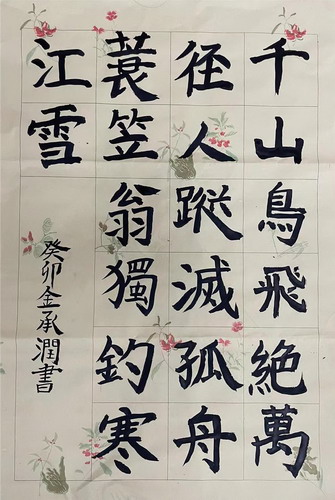 千山鳥飛絶萬
徑人蹤滅孤舟
蓑笠翁獨釣寒
江雪
癸卯金承潤書